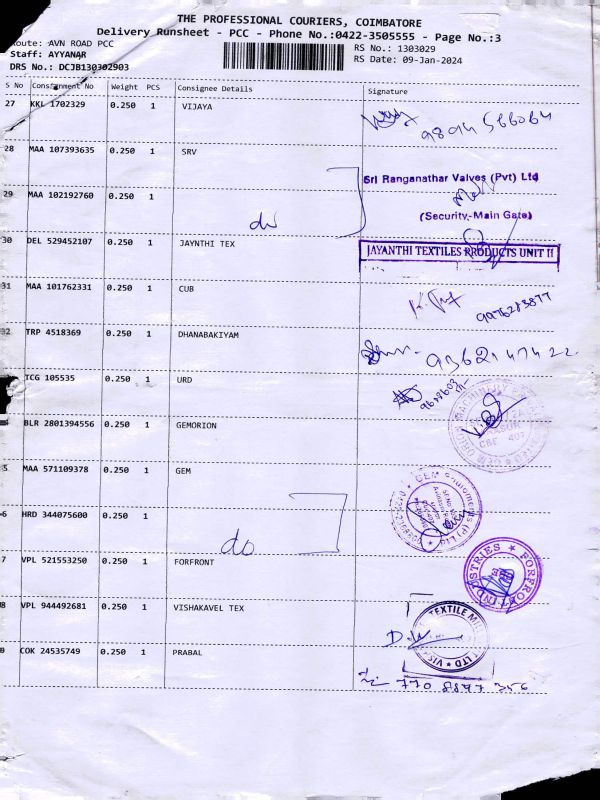 THE PROFESSIONAL COURIERS, COIMBATORE
Delivery Runsheet - PCC - Phone No.:0422-3505555 - Page No.:3
Route: AVN ROAD PCC
Staff: AYYANAR
DRS No.: DCJB130302903
RS No.: 1303029
RS Date: 09-Jan-2024
S No Consignment No Weight PCS Consignee Details Signature
27 KKL 1702329 0.250 1 VIJAYA
28 MAA 107393635 0.250 1 SRV
Sri Ranganathar Valves (Pvt) Ltd
29 MAA 102192760 0.250 1 do
(Security-Main Gate)
30 DEL 529452107 0.250 1 JAYNTHI TEX
JAYANTHI TEXTILES PRODUCTS UNIT II
31 MAA 101762331 0.250 1 CUB
32 TRP 4518369 0.250 1 DHANABAKIYAM
TCG 105535 0.250 1 URD
BLR 2801394556 0.250 1 GEMORION
5 MAA 571109378 0.250 1 GEM
6 HRD 344075600 0.250 1 do
7 VPL 521553250 0.250 1 FORFRONT
FORFRONT INDUSTRIES
8 VPL 944492681 0.250 1 VISHAKAVEL TEX
TEXTILE
COK 24535749 0.250 1 PRABAL